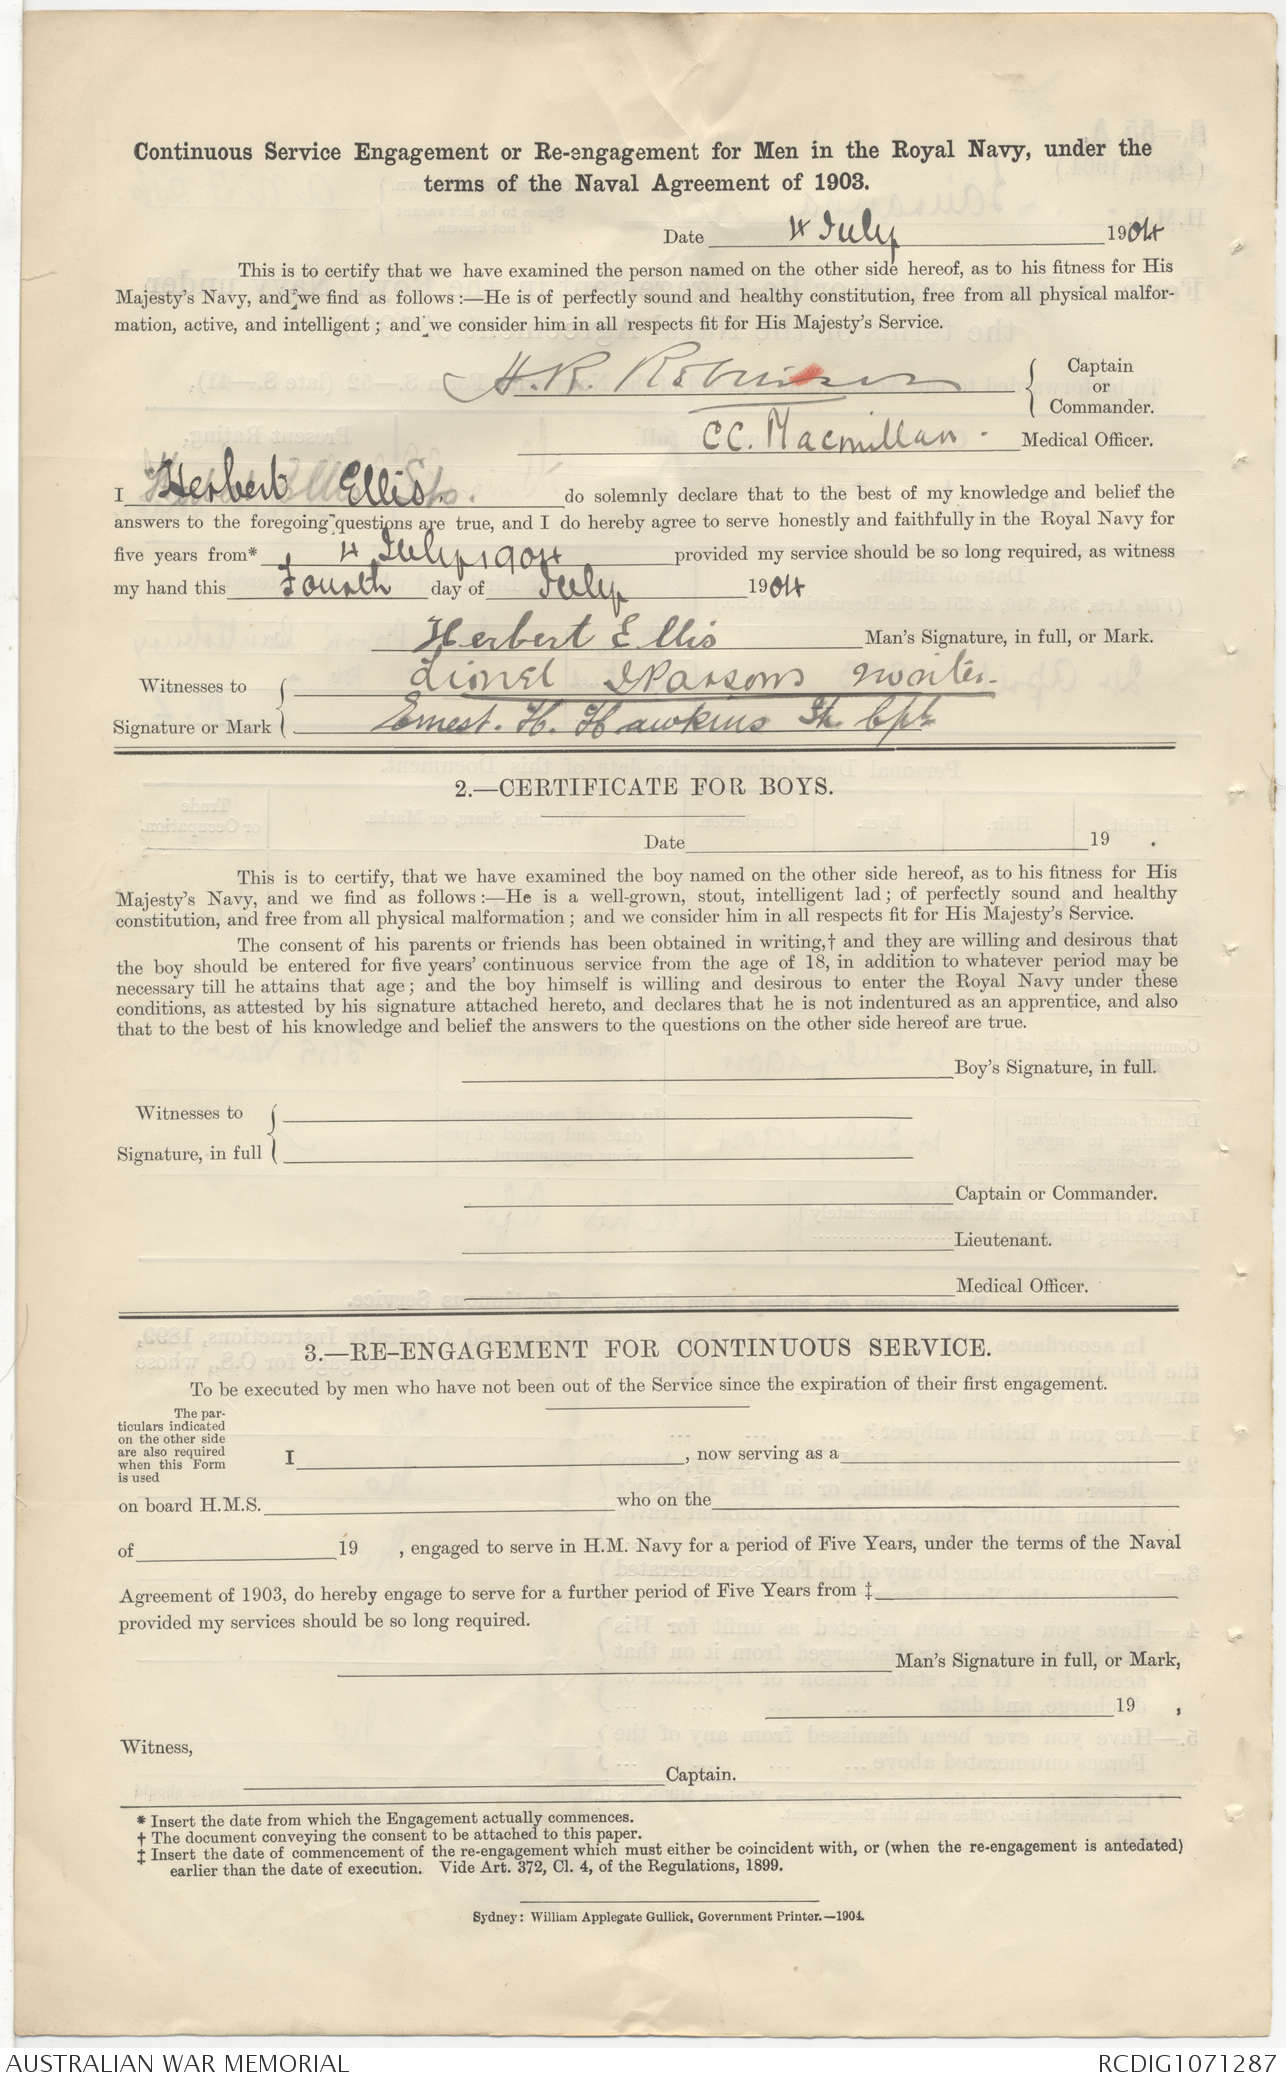 Continuous Service Engagement or Re-engagement for Men in the Royal Navy, under the
terms of the Naval Agreement of 1903.
Date 4 July 1904
This is to certify that we have examined the person named on the other side hereof, as to his fitness for His
Majesty's Navy, and we find as follows:—He is of perfectly sound and healthy constitution, free from all physical malfor-
mation, active, and intelligent; and we consider him in all respects fit for His Majesty's Service.
H.R. Robinson { Captain or Commander.
C C. Macmillan. Medical Officer.
I Herbert Ellis. do solemnly declare that to the best of my knowledge and belief the
answers to the foregoing questions are true, and I do hereby agree to serve honestly and faithfully in the Royal Navy for
five years from* 4 July 1904 provided my service should be so long required, as witness
my hand this Fourth day of July 1904
Herbert Ellis Man's Signature, in full, or Mark.
Witnesses to { Lionel Parsons writer.
Signature or Mark { Ernest. H. Hawkins
2.—CERTIFICATE FOR BOYS.
Date 19 .
This is to certify, that we have examined the boy named on the other side hereof, as to his fitness for His
Majesty's Navy, and we find as follows:—He is a well-grown, stout, intelligent lad; of perfectly sound and healthy
constitution, and free from all physical malformation; and we consider him in all respects fit for His Majesty's Service.
The consent of his parents or friends has been obtained in writing,† and they are willing and desirous that
the boy should be entered for five years' continuous service from the age of 18, in addition to whatever period may be
necessary till he attains that age; and the boy himself is willing and desirous to enter the Royal Navy under these
conditions, as attested by his signature attached hereto, and declares that he is not indentured as an apprentice, and also
that to the best of his knowledge and belief the answers to the questions on the other side hereof are true.
Boy's Signature, in full.
Witnesses to {
Signature, in full {
Captain or Commander.
Lieutenant.
Medical Officer.
3.—RE-ENGAGEMENT FOR CONTINUOUS SERVICE.
To be executed by men who have not been out of the Service since the expiration of their first engagement.
The par-
ticulars indicated
on the other side
are also required
when this Form
is used
I , now serving as a
on board H.M.S. who on the
of 19 , engaged to serve in H.M. Navy for a period of Five Years, under the terms of the Naval
Agreement of 1903, do hereby engage to serve for a further period of Five Years from ‡
provided my services should be so long required.
Man's Signature in full, or Mark,
19 ,
Witness,
Captain.
* Insert the date from which the Engagement actually commences.
† The document conveying the consent to be attached to this paper.
‡ Insert the date of commencement of the re-engagement which must either be coincident with, or (when the re-engagement is antedated)
earlier than the date of execution. Vide Art. 372, Cl. 4, of the Regulations, 1899.
Sydney: William Applegate Gullick, Government Printer.—1904.
AUSTRALIAN WAR MEMORIAL RCDIG1071287